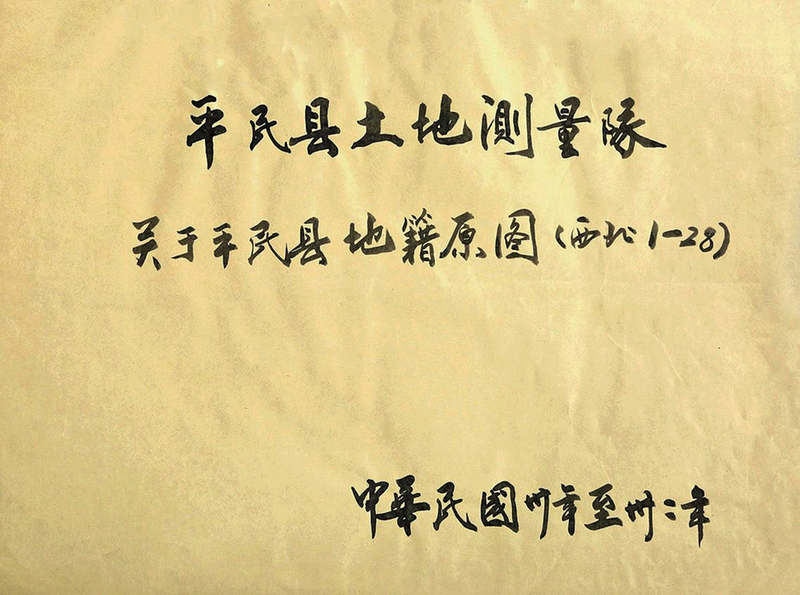 平民县土地測量隊
关于平民县地籍原图(西北1-28)
中華民國卅年至卅二年